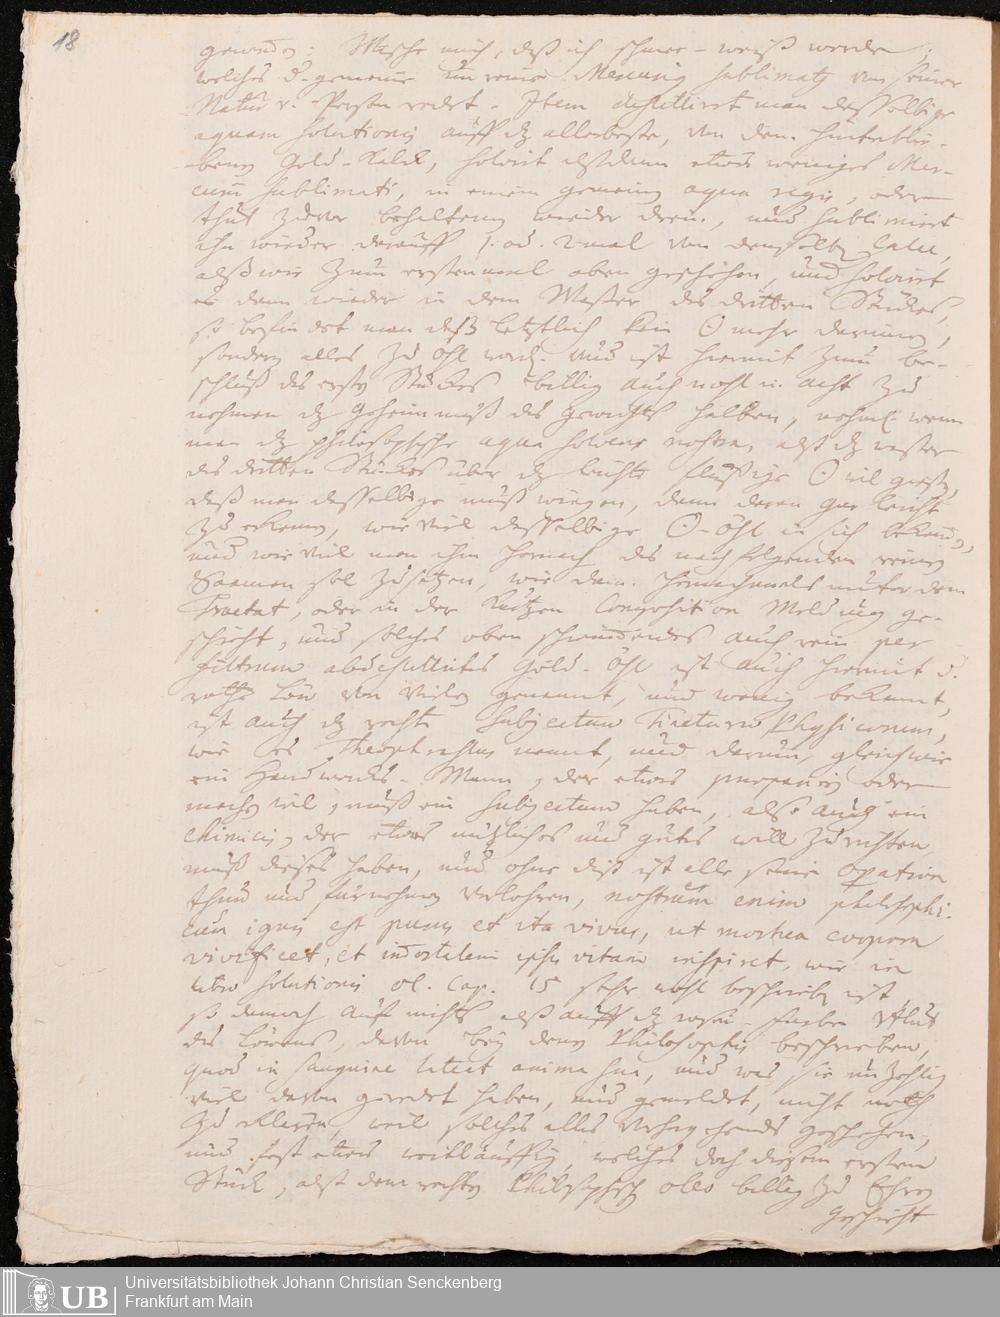 18
gewinnen: Wasche mich, daß ich schnee-weiß werde,
welches d. gemeine unreine Mercurij sublimatj von seiner
Natur v. Person redet. Item destillirt man dasselbige
aquam solutionis auff dz allerbeste, von dem hinterblie-
benen Gold-Kalck, solvirt alßdann etwas weniges Mer-
curii sublimati, in einem gemeinen aqua regis, oder
thut zuvor behaltenen wieder drein, und sublimirt
ihn wieder darauff 1. od. 2 mal von demselben Calce,
alß wie zum erstenmal oben geschehen, und solvirt
es dann wieder in dem Wasser des dritten Stückes,
so befindet man daß letztlich kein ☉ mehr darinnen,
sondern alles zu öhl word. und ist hiermit zum be-
schluß des ersten Stückes billig auch wohl in acht zu
nehmen dz Geheimnuß des gewichts halben, nehml. wenn
man dz philosophische aqua solvens nostra, alß dz waßer
des dritten Stückes über dz leicht flüßige ☉ will gießen,
daß man dasselbige muß wiegen, dann daran gar leicht
zu erkennen, wie viel dasselbige ☉-öhl in sich bekommen,
und wie viel man ihm hernach des nachfolgenden reinen
Saamen sol zusetzen, wie dann hernachmals unter dem
Tractat, oder in der kurtzen Composition Meldung ge-
schicht, und solches oben schwimmendes auch rein per
filtrum abdestillirtes Gold-öhl ist auch hiermit d.
rothe Löw von vielen genannt, und wenig bekannt,
ist auch dz rechte Subjectum Tincturae Physicorum,
wie es Theophrastus nennt, und darum, gleichwie
ein Handwercks-Mann, der etwas praepariren oder
machen will, muß ein subjectum haben, also auch ein
Chimicus, der etwas nützliches und gutes will zurichten
muß dieses haben, und ohne diß ist alle seine operation
thun und fürnehmen verlohren, nostrum enim philosophi-
cum ignis est purus et ita vivus, ut mortua corpora
vivificet, et immortalem ipsis vitam inspiret, wie in
libro solutionis ol. Cap. 15 sehr wohl beschrieben ist
so dennoch auf nichts alß auff dz rosin-farbe Blut
des Löwens, davon bey denen Philosophis beschrieben,
quod in sanguine latet anima sua, und was sie unzehlig
viel davon geredet haben, und gemeldet, nicht noth
zu erklären, weil solches alles vorhergehends geschehen,
und fast etwas weitläuffig, welches doch diesem ersten
Stück, alß dem rechten Philosophischen oleo billig zu Ehren
geschicht
UB
Universitätsbibliothek Johann Christian Senckenberg
Frankfurt am Main